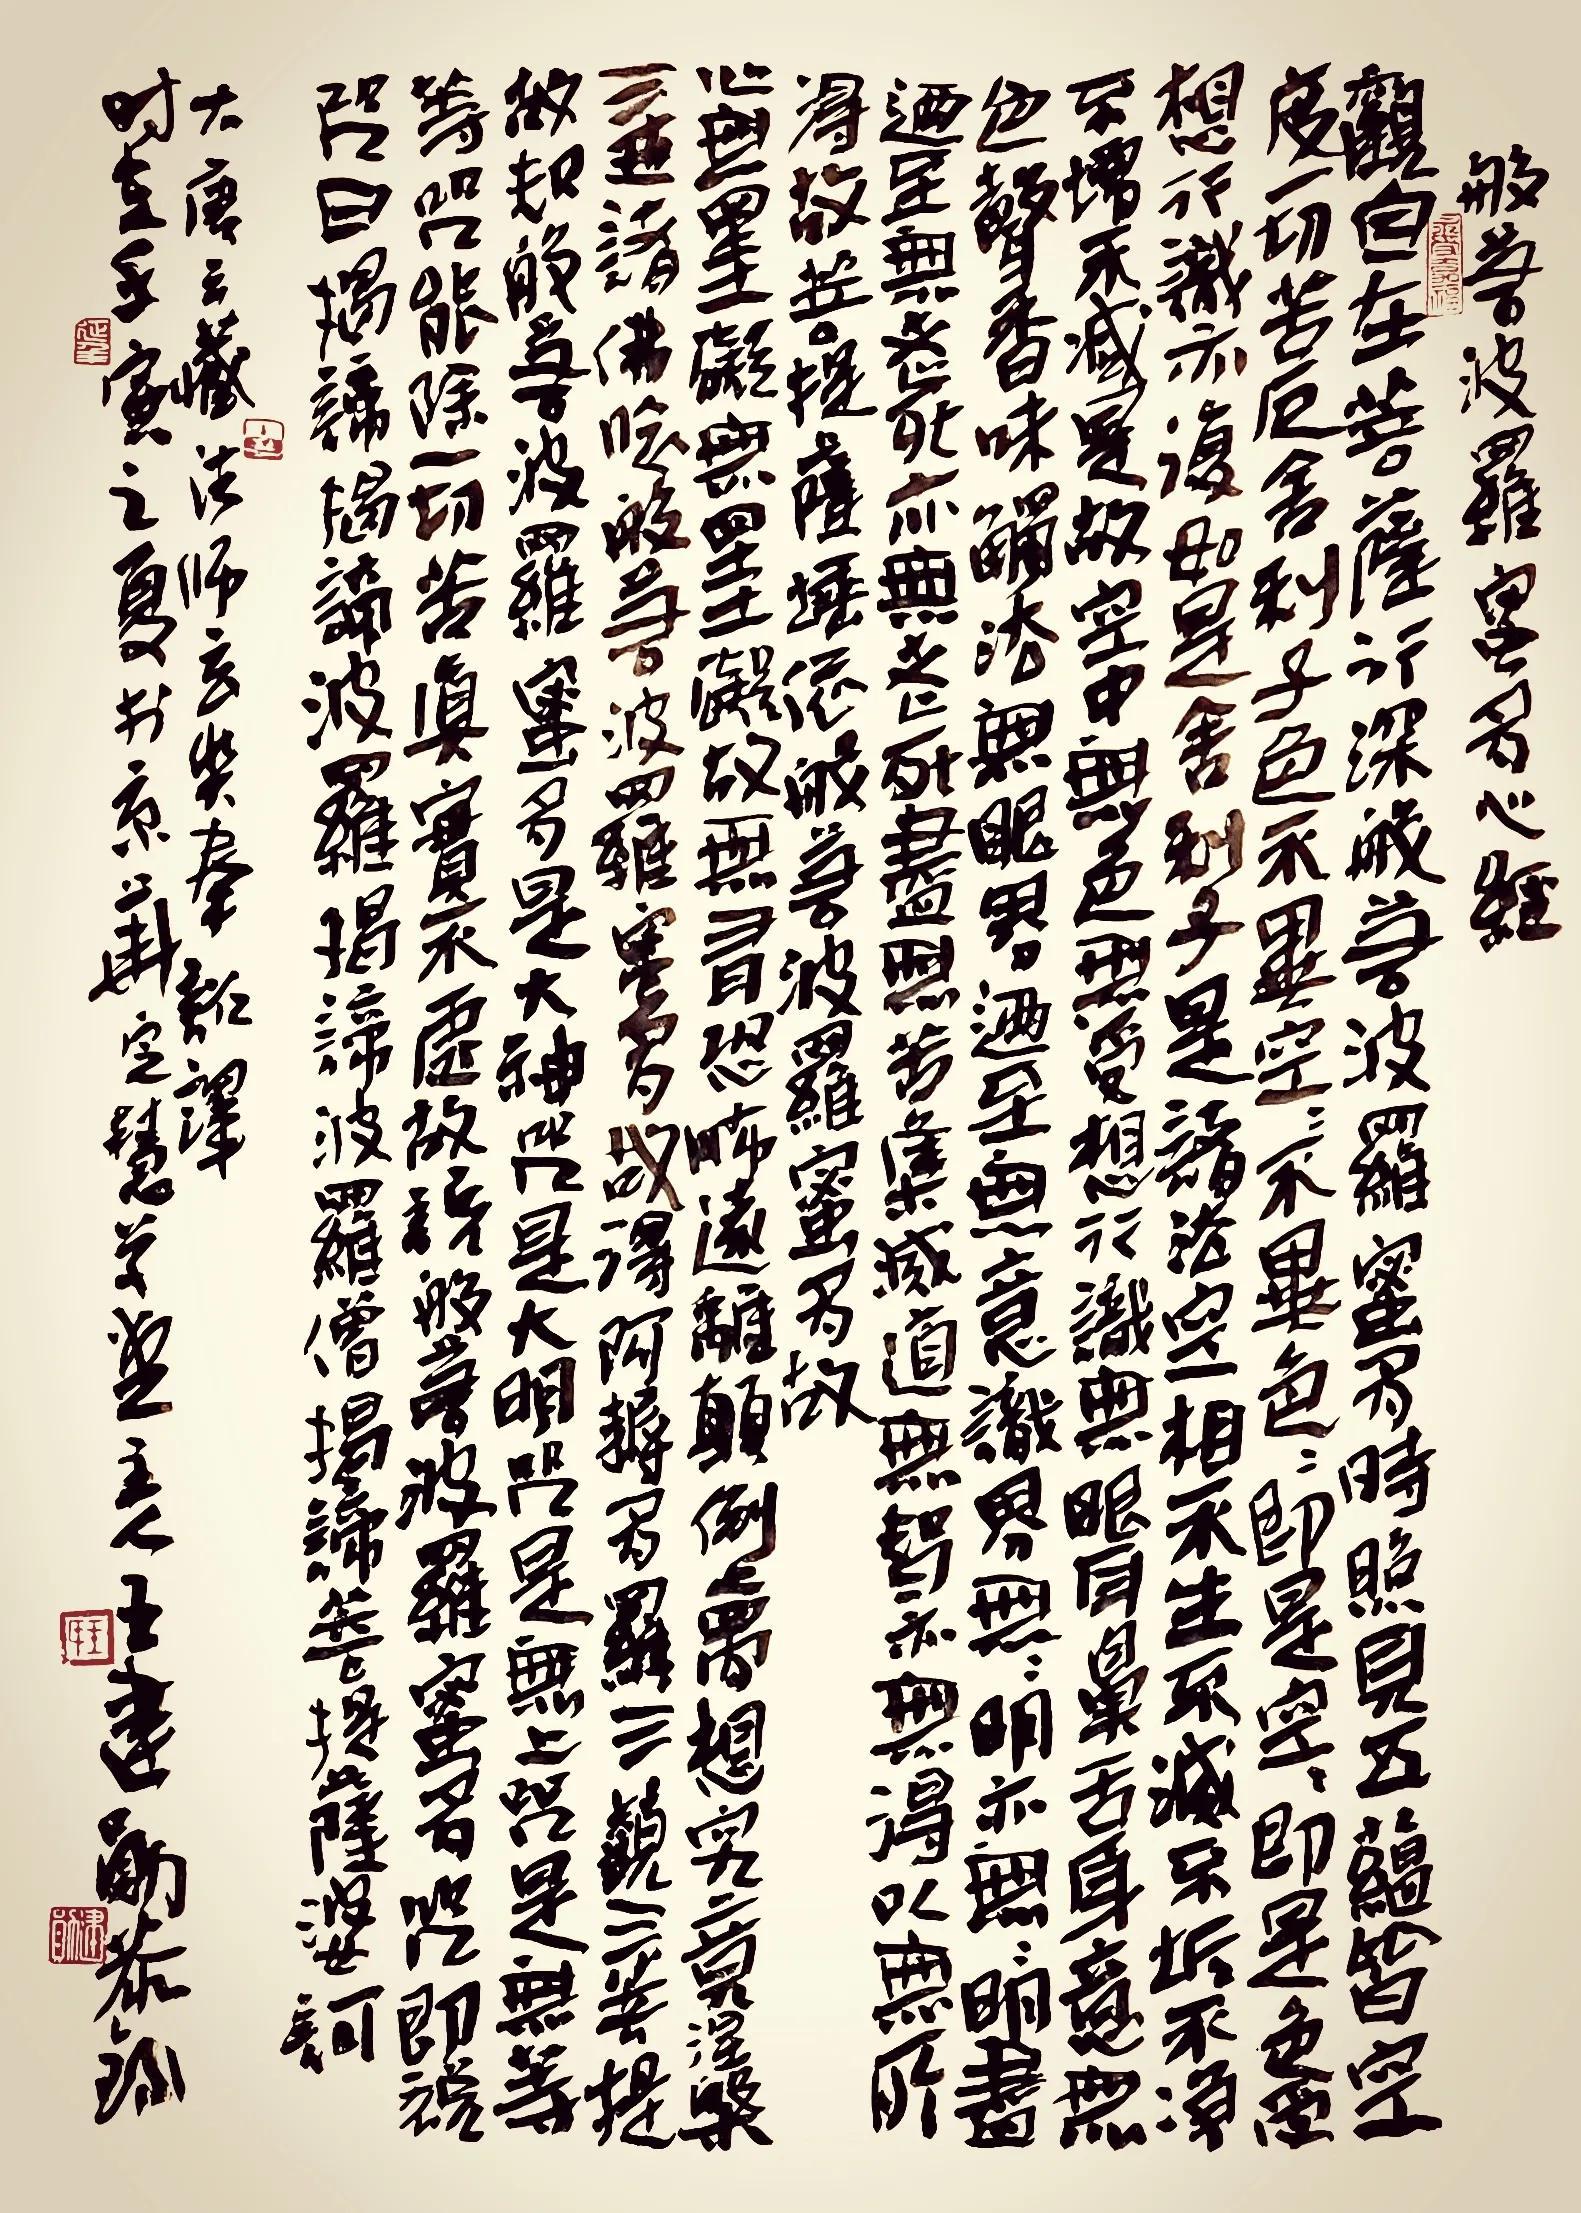 般若波羅蜜多心經
觀自在菩薩行深般若波羅蜜多時照見五蘊皆空
度一切苦厄舍利子色不異空〻不異色〻即是空〻即是色受
想行識亦復如是舍利子是諸法空相不生不滅不垢不淨
不增不減是故空中無色無受想行識無眼耳鼻舌身意無
色聲香味觸法無眼界迺至無意識界無〻明亦無〻明盡
迺至無老死亦無老死盡無苦集滅道無智亦無得以無所
得故菩提薩埵依般若波羅蜜多故
心無罣礙無罣礙故無有恐怖遠離顛倒夢想究竟涅槃
三世諸佛依般若波羅蜜多故得阿耨多羅三藐三菩提
故知般若波羅蜜多是大神咒是大明咒是無上咒是無等
等咒能除一切苦真實不虛故說般若波羅蜜多咒即說
咒曰揭諦揭諦波羅揭諦波羅僧揭諦菩提薩婆訶
大唐三藏法師玄奘奉詔譯
時在壬寅之夏於京華定慧草堂主人王建勛恭錄